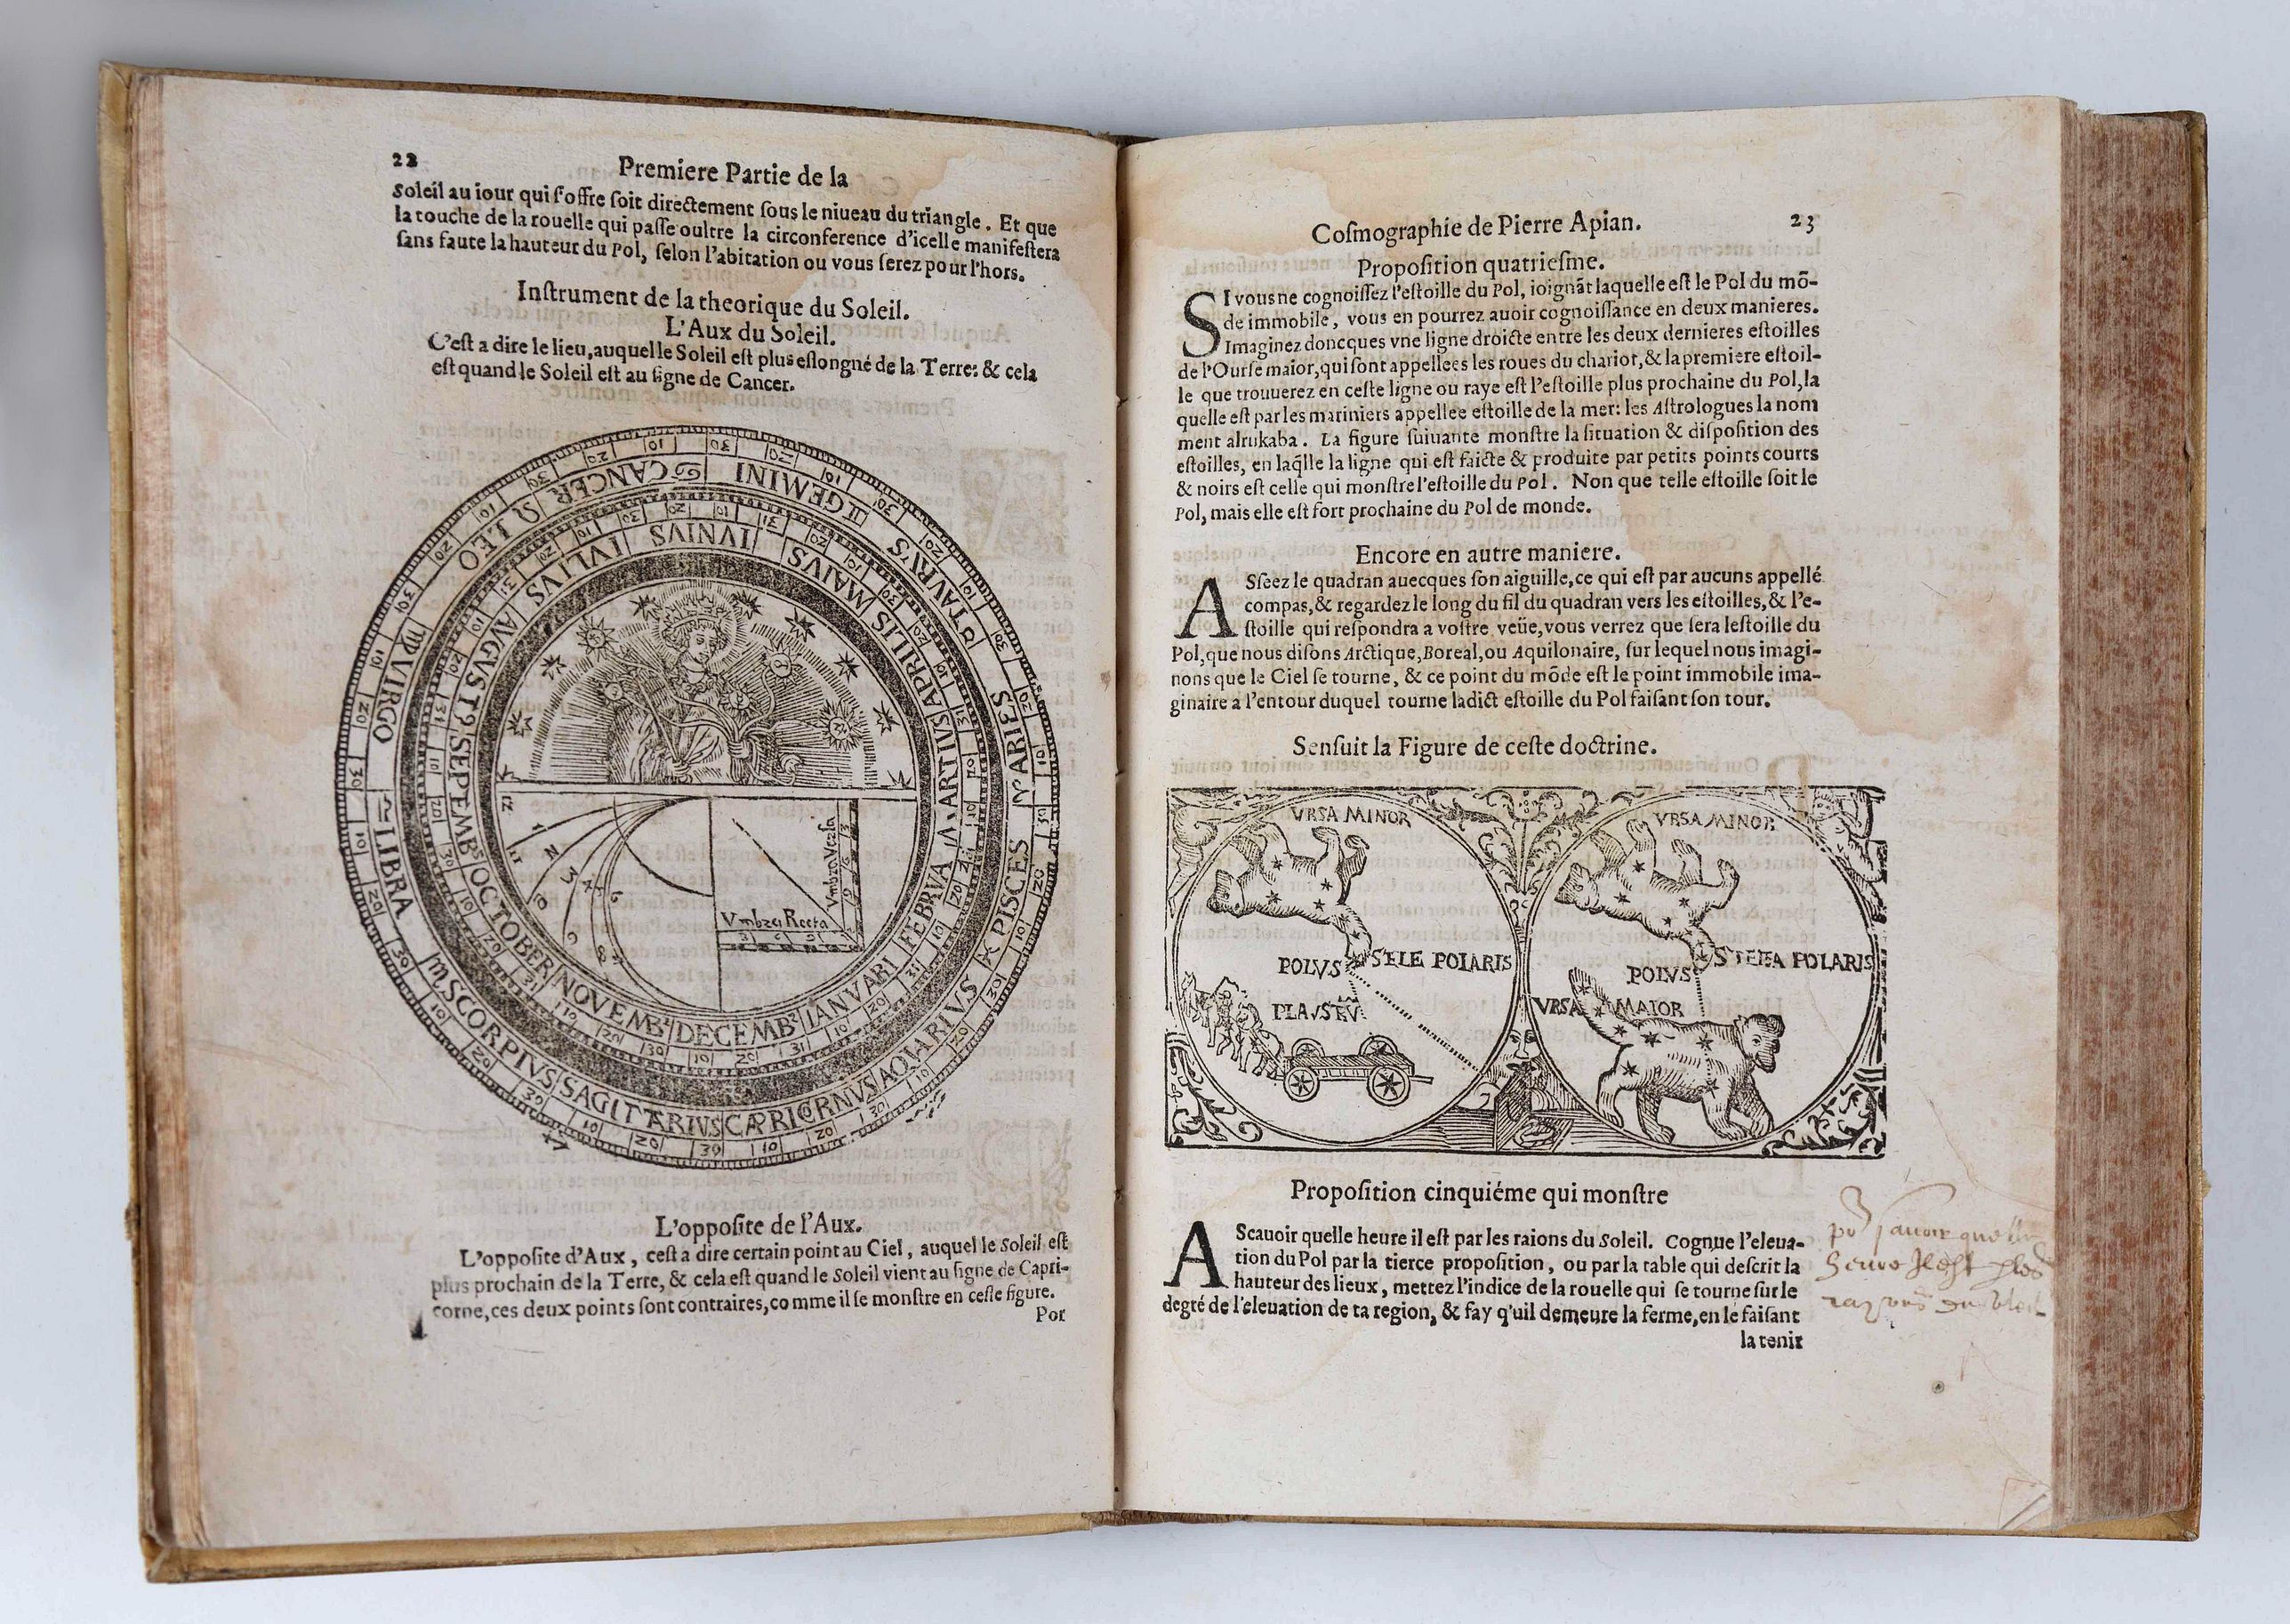 22
Premiere Partie de la
Soleil au iour qui s'offre soit directement sous le niueau du triangle. Et que
la touche de la rouelle qui passe oultre la circonference d'icelle manifestera
sans faute la hauteur du Pol, selon l'abitation ou vous serez pour l'hors.
Instrument de la theorique du Soleil.
L'Aux du Soleil.
C'est a dire le lieu, auquel le Soleil est plus eslongné de la Terre: & cela
est quand le Soleil est au signe de Cancer.
♋ CANCER
♊ GEMINI
♉ TAVRVS
♈ ARIES
♓ PISCES
AQVARIVS
CAPRICORNVS
SAGITTARIVS
♏ SCORPIVS
♎ LIBRA
♍ VIRGO
♌ LEO
IVNIVS
MAIVS
APRILIS
MARTIVS
FEBRVA
IANVARI
DECEMB
NOVEMB
OCTOBER
SEPEMB
AVGVST9
IVLIVS
Vmbra Recta
Vmbra Versa
L'opposite de l'Aux.
L'opposite d'Aux, cest a dire certain point au Ciel, auquel le Soleil est
plus prochain de la Terre, & cela est quand le Soleil vient au signe de Capri-
corne, ces deux points sont contraires, comme il se monstre en ceste figure.
Por
Cosmographie de Pierre Apian.
23
Proposition quatriesme.
SI vous ne cognoissez l'estoille du Pol, ioignãt laquelle est le Pol du mõ-
de immobile, vous en pourrez auoir cognoissance en deux manieres.
Imaginez doncques vne ligne droicte entre les deux dernieres estoilles
de l'Ourse maior, qui sont appellees les roues du chariot, & la premiere estoil-
le que trouuerez en ceste ligne ou raye est l'estoille plus prochaine du Pol, la
quelle est par les mariniers appellee estoille de la mer: les Astrologues la nom
ment alrukaba. La figure suiuante monstre la situation & disposition des
estoilles, en laq̃lle la ligne qui est faicte & produite par petits points courts
& noirs est celle qui monstre l'estoille du Pol. Non que telle estoille soit le
Pol, mais elle est fort prochaine du Pol de monde.
Encore en autre maniere.
ASseez le quadran auecques son aiguille, ce qui est par aucuns appellé
compas, & regardez le long du fil du quadran vers les estoilles, & l'e-
stoille qui respondra a vostre veüe, vous verrez que sera lestoille du
Pol, que nous disons Arctique, Boreal, ou Aquilonaire, sur lequel nous imagi-
nons que le Ciel se tourne, & ce point du mõde est le point immobile ima-
ginaire a l'entour duquel tourne ladict estoille du Pol faisant son tour.
Sensuit la Figure de ceste doctrine.
VRSA MINOR
POLVS
STELE POLARIS
PLAVSTRV
VRSA MINOR
POLVS
STELLA POLARIS
VRSA MAIOR
Proposition cinquiéme qui monstre
AScauoir quelle heure il est par les raions du Soleil. Cognue l'eleua-
tion du Pol par la tierce proposition, ou par la table qui descrit la
hauteur des lieux, mettez l'indice de la rouelle qui se tourne sur le
degré de l'éleuation de ta region, & fay qu'il demeure la ferme, en le faisant
la tenir